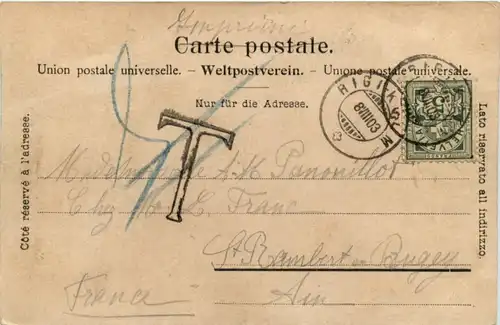 Imprimé
Carte postale.
Union postale universelle. – Weltpostverein. – Unione postale universale.
Nur für die Adresse.
Côté réservé à l'adresse.
Lato riservato all indirizzo.
RIGI KULM
T
Mademoiselle
Chez M. L. Franc
St Rambert en Bugey
Ain
France